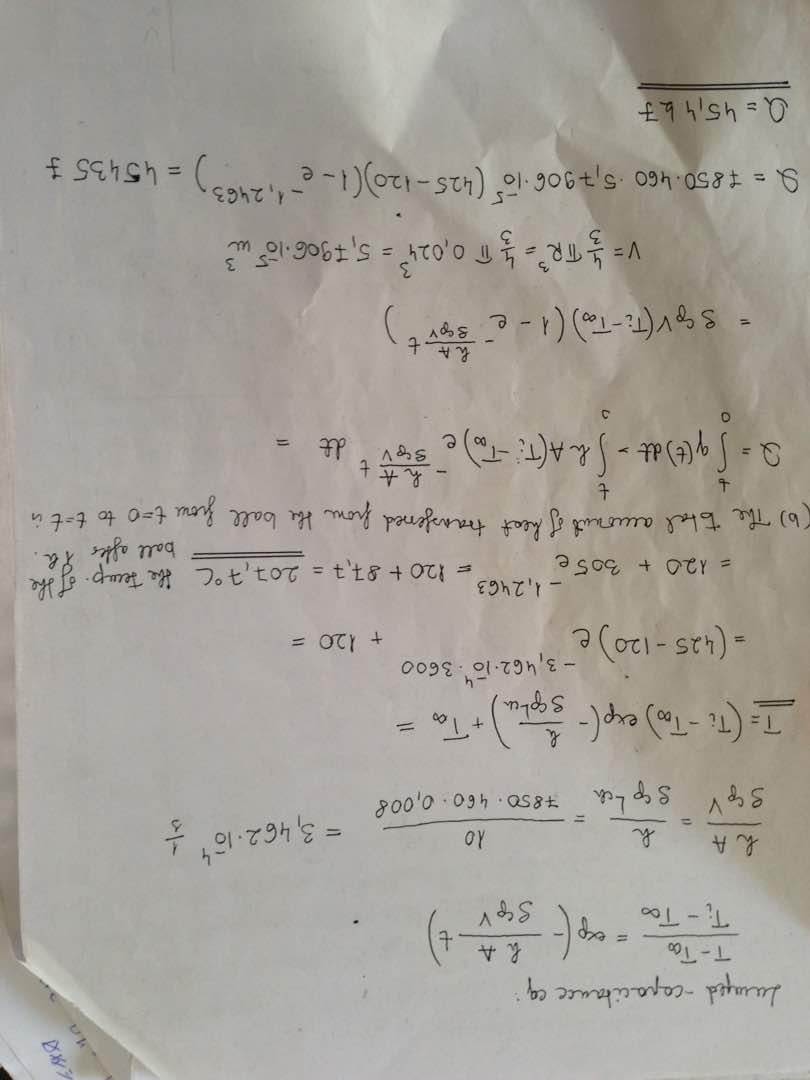 Lumped-capacitance eq:
(T - T∞)/(Ti - T∞) = exp(- (hA/ρcpV) t)
hA/ρcpV = h/ρcpLch = 10/(7850·460·0,008) = 3,462·10⁻⁴ 1/s
T = (Ti - T∞) exp(- h/ρcpLch) + T∞ =
= (425 - 120) e^(-3,462·10⁻⁴·3600) + 120 =
= 120 + 305 e^(-1,2463) = 120 + 87,7 = 207,7 °C the temp. of the
ball after 1h.
(b) The total amount of heat transferred from the ball from t=0 to t=t is
Q = ∫₀ᵗ q(t)dt = ∫₀ᵗ hA(Ti - T∞) e^(- (hA/ρcpV) t) dt =
= ρcpV(Ti - T∞)(1 - e^(- (hA/ρcpV) t))
V = 4/3 πR³ = 4/3 π 0,024³ = 5,7906·10⁻⁵ m³
Q = 7850·460·5,7906·10⁻⁵ (425 - 120)(1 - e^(-1,2463)) = 45435 J
Q = 45,4 kJ